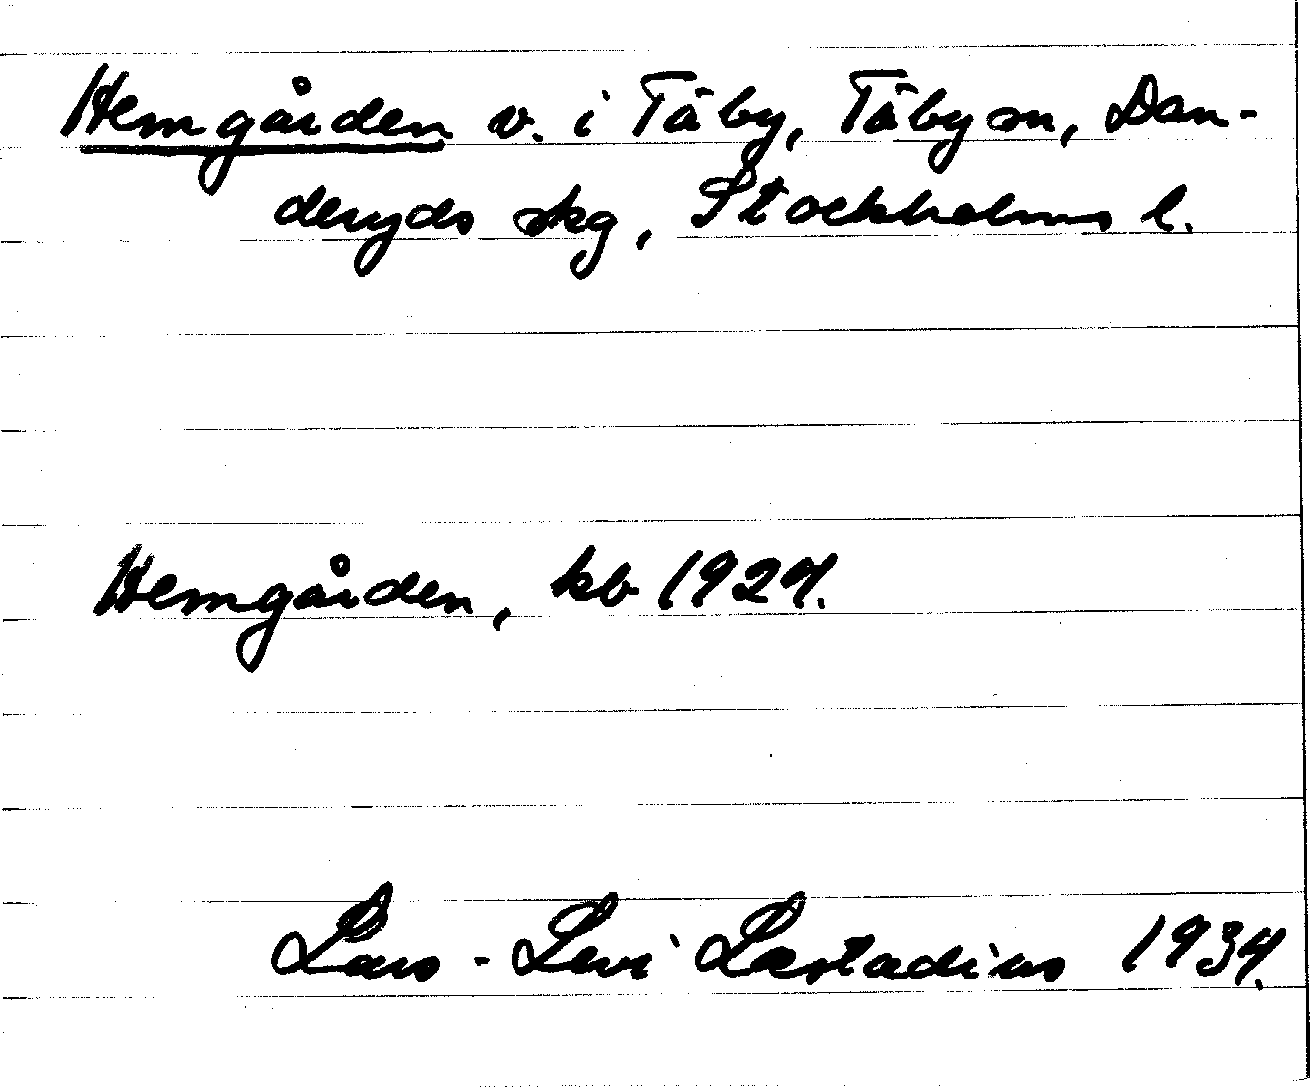 Hemgården v. i Täby, Täby sn, Dan-
deryds skg, Stockholms l.
Hemgården, kb 1924.
Lars-Levi Læstadius 1934.